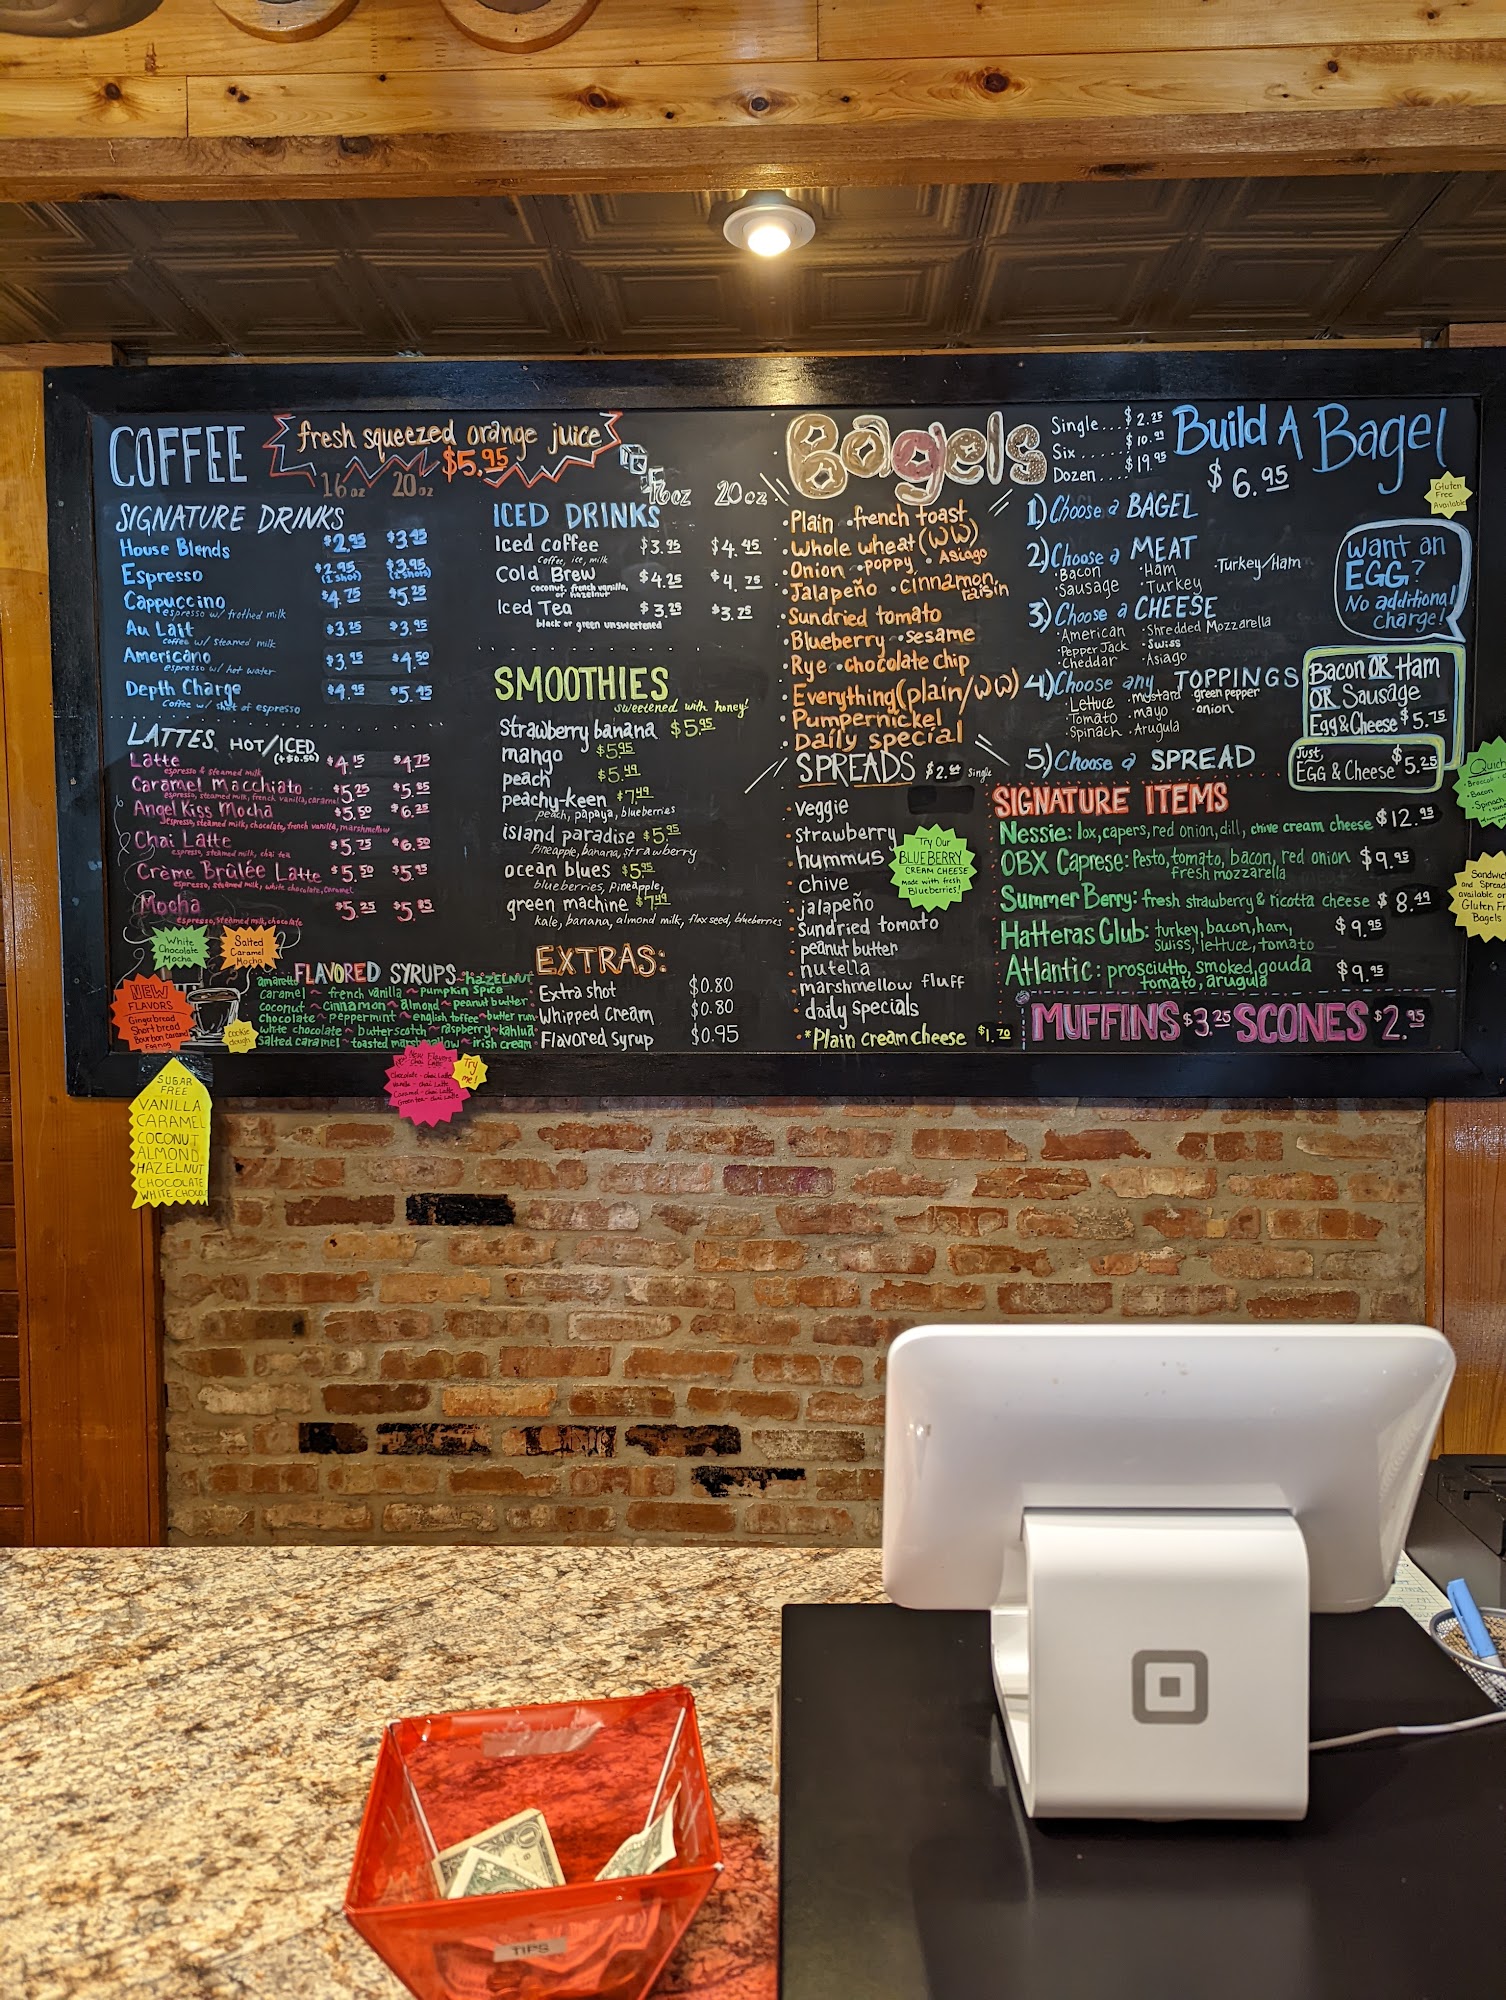 COFFEE
fresh squeezed orange juice
$5.95
16 oz 20 oz
SIGNATURE DRINKS
House Blends $2.95 $3.95
Espresso $2.95 $3.95
(1 shot) (2 shots)
Cappuccino $4.75 $5.25
espresso w/ frothed milk
Au Lait $3.25 $3.95
coffee w/ steamed milk
Americano $3.95 $4.50
espresso w/ hot water
Depth Charge $4.95 $5.45
Coffee w/ shot of espresso
LATTES HOT/ICED
(+$0.50)
Latte $4.15 $4.75
espresso & steamed milk
Caramel Macchiato $5.25 $5.85
espresso, steamed milk, french vanilla, caramel
Angel Kiss Mocha $5.50 $6.25
espresso, steamed milk, chocolate, french vanilla, marshmallow
Chai Latte $5.75 $6.50
espresso, steamed milk, chai tea
Crème Brûlée Latte $5.50 $5.95
espresso, steamed milk, white chocolate, caramel
Mocha $5.25 $5.85
espresso, steamed milk, chocolate
White
Chocolate
Mocha
Salted
Caramel
Mocha
NEW
FLAVORS
Gingerbread
Shortbread
Bourbon Caramel
Eggnog
cookie
dough
FLAVORED SYRUPS~hazelnut
amaretto
caramel ~ french vanilla ~ pumpkin spice
coconut ~ cinnamon ~ almond ~ peanut butter
chocolate ~ peppermint ~ english toffee ~ butter rum
white chocolate ~ butterscotch ~ raspberry ~ kahlua
salted caramel ~ toasted marshmallow ~ irish cream
SUGAR
FREE
VANILLA
CARAMEL
COCONUT
ALMOND
HAZELNUT
CHOCOLATE
WHITE CHOCOL
New Flavors
Chai Latte
Chocolate - chai Latte
Vanilla - chai Latte
Caramel - chai Latte
Green tea - chai Latte
Try
me!
16 oz 20 oz
ICED DRINKS
Iced Coffee $3.95 $4.45
Coffee, ice, milk
Cold Brew $4.25 $4.75
coconut, french vanilla,
or hazelnut
Iced Tea $3.25 $3.75
black or green unsweetened
SMOOTHIES
sweetened with honey!
Strawberry banana $5.95
mango $5.95
peach $5.49
peachy-keen $7.49
peach, papaya, blueberries
island paradise $5.95
Pineapple, banana, strawberry
ocean blues $5.95
blueberries, Pineapple,
green machine $7.49
kale, banana, almond milk, flaxseed, blueberries
EXTRAS:
Extra shot $0.80
Whipped Cream $0.80
Flavored Syrup $0.95
Bagels
Single... $2.25
Six..... $10.99
Dozen.... $19.95
•Plain •french toast
•Whole wheat (WW)
•Onion •poppy •Asiago
•Jalapeño •cinnamon raisin
•Sundried tomato
•Blueberry •sesame
•Rye •chocolate chip
•Everything (plain/WW)
•Pumpernickel
•Daily special
SPREADS Single
veggie
•strawberry
•hummus
•chive
•jalapeño
•sundried tomato
•peanut butter
•nutella
•marshmallow fluff
•daily specials
•*Plain cream cheese $1.70
Try Our
BLUEBERRY
CREAM CHEESE
made with fresh
Blueberries!
Build A Bagel
$6.95
Gluten
Free
Available
1) Choose a BAGEL
2) Choose a MEAT
•Bacon •Ham •Turkey/Ham
•Sausage •Turkey
3) Choose a CHEESE
•American •Shredded Mozzarella
•Pepper Jack •Swiss
•Cheddar •Asiago
4) Choose any TOPPINGS
•Lettuce •mustard •green pepper
•Tomato •mayo •onion
•Spinach •Arugula
5) Choose a SPREAD
Want an
EGG?
No additional
charge!
Bacon OR Ham
OR Sausage
Egg & Cheese $5.75
Just
EGG & Cheese $5.25
SIGNATURE ITEMS
Nessie: lox, capers, red onion, dill, chive cream cheese $12.95
OBX Caprese: Pesto, tomato, bacon, red onion $9.95
fresh mozzarella
Summer Berry: fresh strawberry & ricotta cheese $8.49
Hatteras Club: turkey, bacon, ham, $9.95
swiss, lettuce, tomato
Atlantic: prosciutto, smoked gouda $9.95
tomato, arugula
MUFFINS $3.25 SCONES $2.95
Quich
•Bacon
•Spinach
Sandwic
and Spread
available on
Gluten Fr
Bagels
TIPS